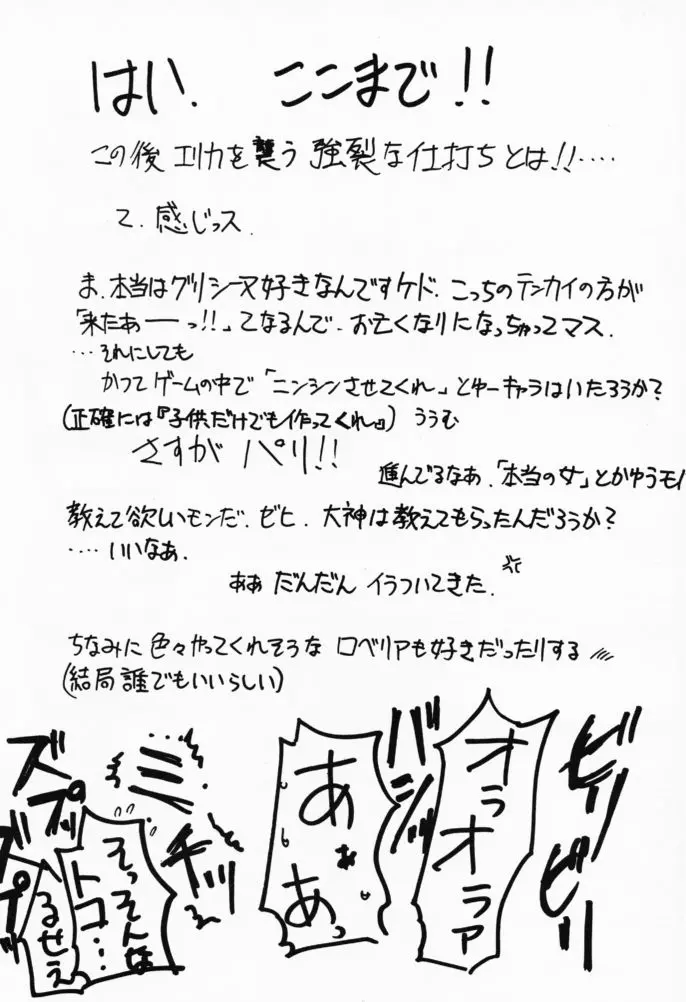 はい、 ここまで!!
この後 エリカを襲う 強裂な仕打ちとは!!‥‥
て、感じっス.
ま、本当はグリシーヌ好きなんですケド、こっちのテンカイの方が
「来たあーーっ!!」てなるんで、お亡くなりになっちゃってマス.
…それにしても
かつてゲームの中で「ニンシンさせてくれ」とゆーキャラはいたろうか?
(正確には『子供だけでも作ってくれ』) ううむ
さすが パリ!!
進んでるなあ、「本当の女」とかゆうモノ
教えて欲しいモンだ、ゼヒ、大神は教えてもらったんだろうか?
‥‥いいなあ、
ああ だんだん イラついてきた、
ちなみに 色々やってくれそうな ロベリアも好きだったりする
(結局 誰でもいいらしい)
ビリ
ビリ
オラオラァ
バシッ
あぁあっ
ミチッ
そっそんな
トコ…
るせえ
ズプ
ズプ